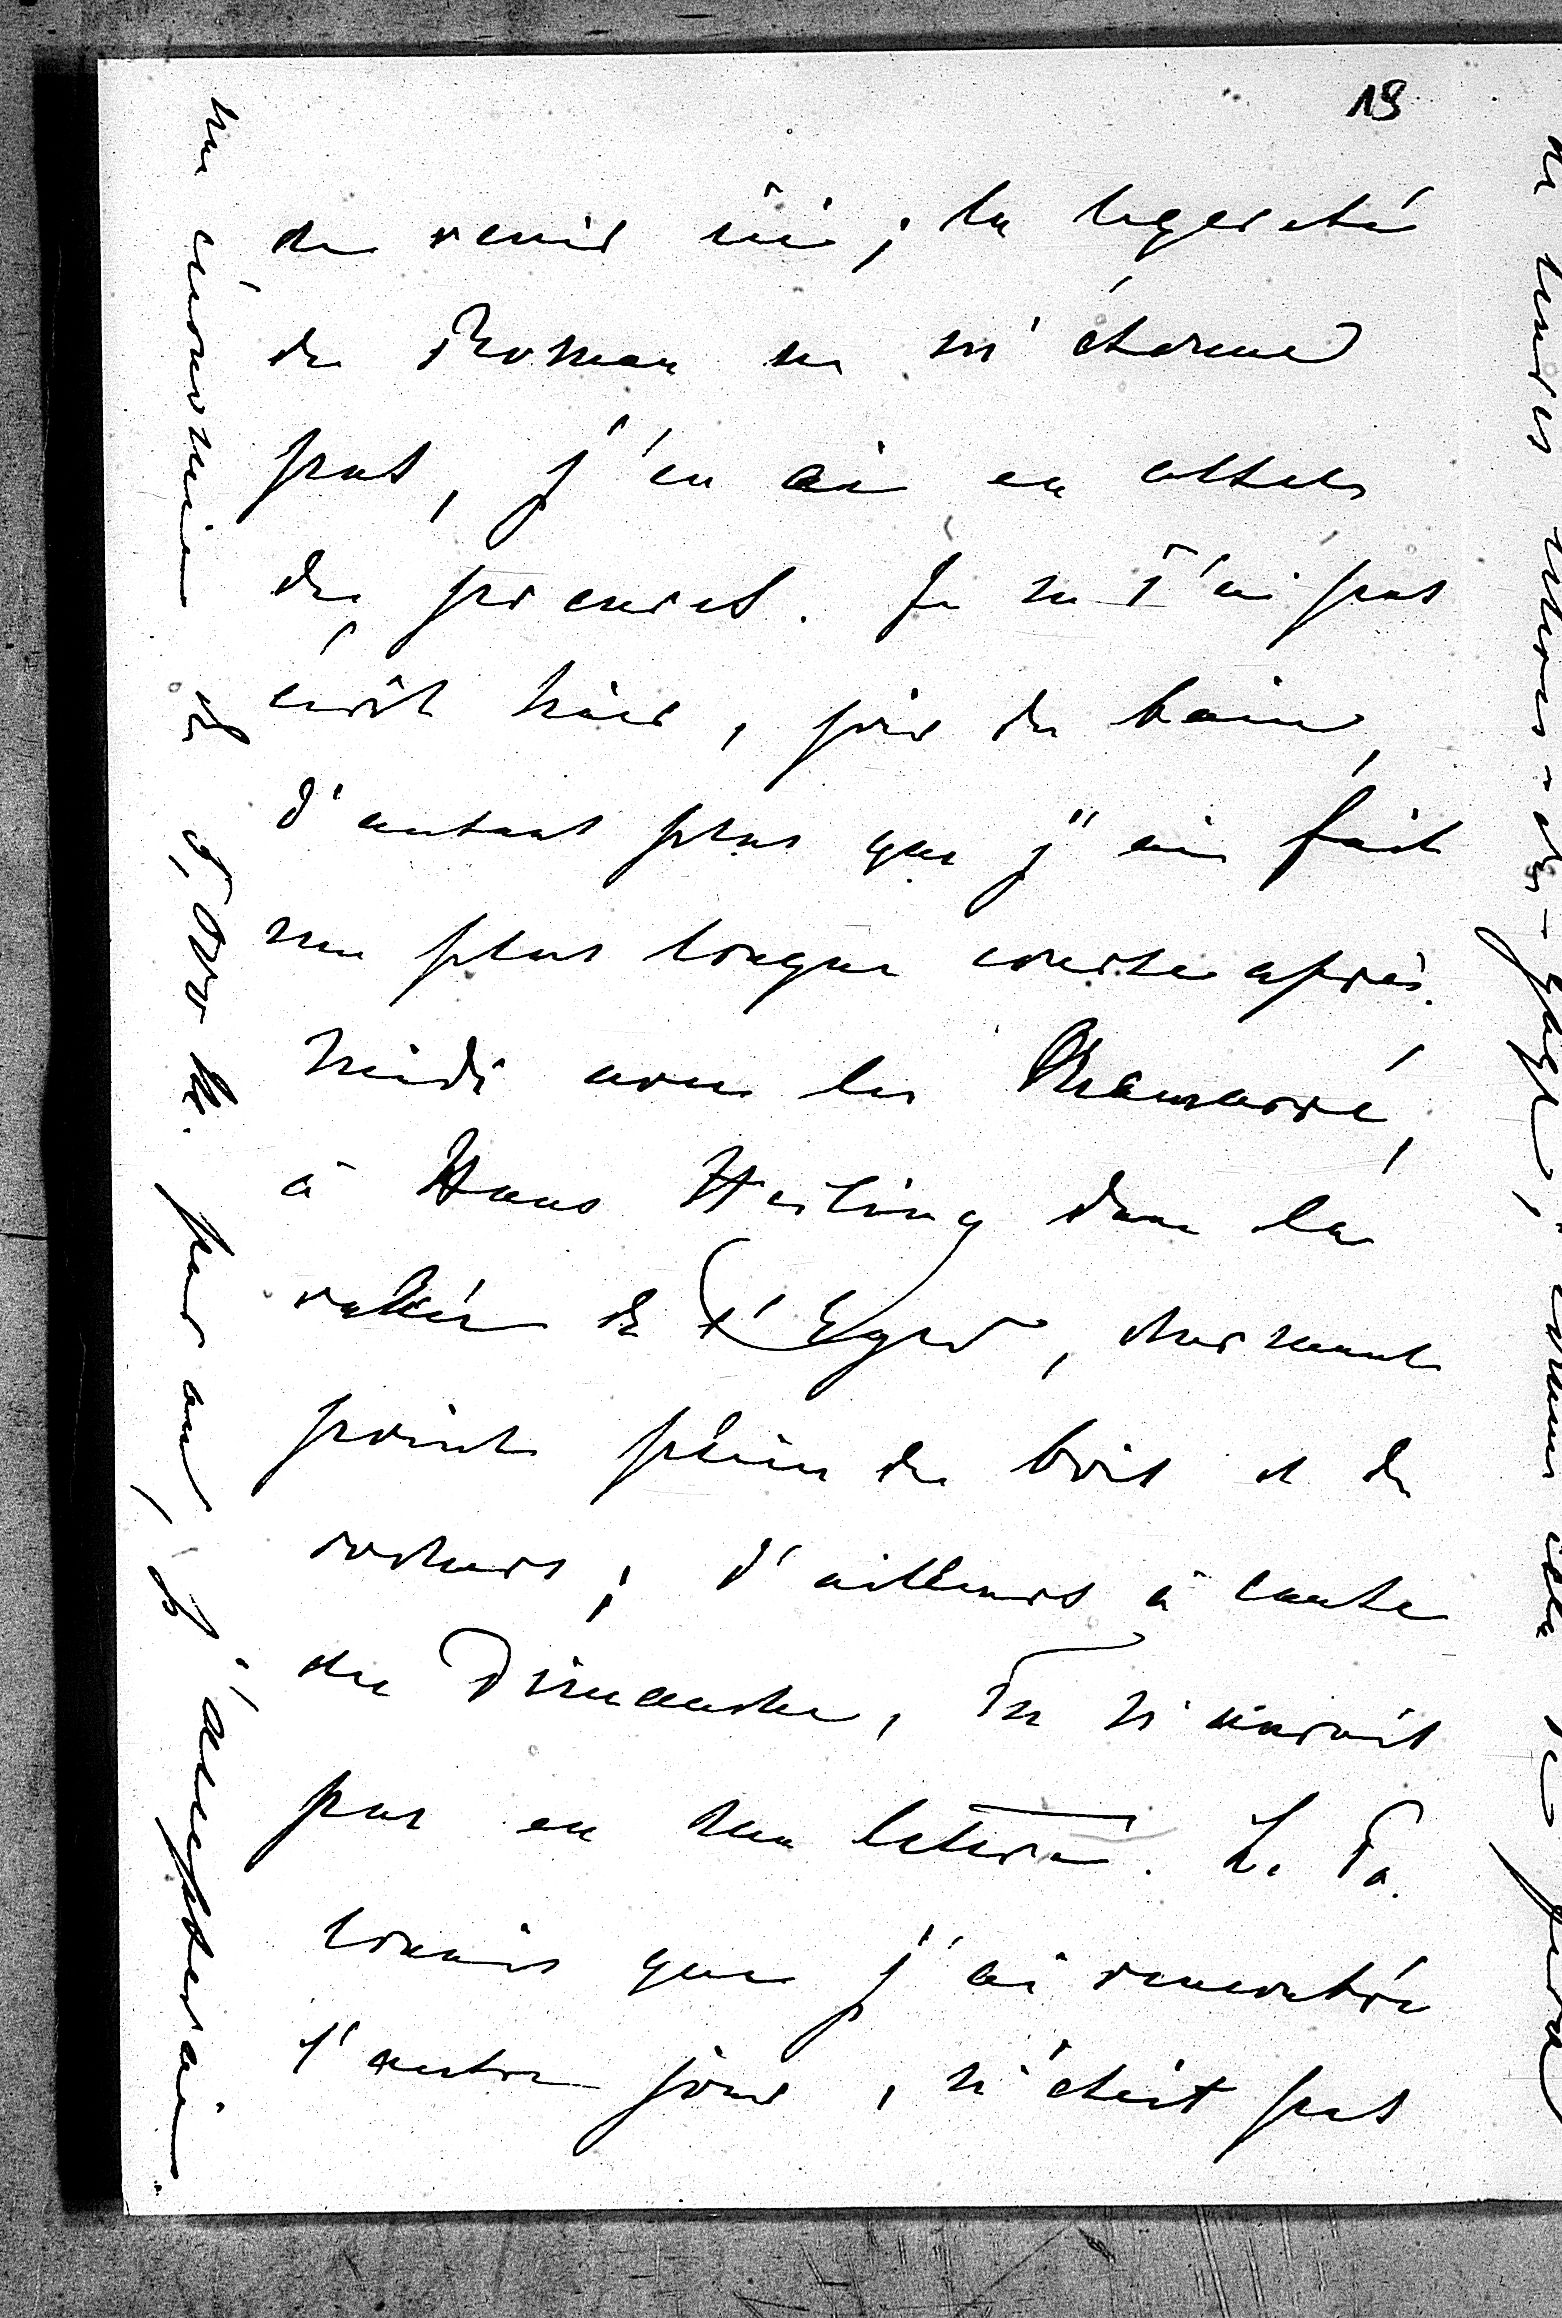 19
de venir ici ; la legereté
de Roman ne m'étonne
pas, j'en ai eu assez
de preuves. Je ne t'ai pas
écrit hier, jour de bain,
d'autant plus que j'ai fait
une plus longue course après.
midi avec les Chamarré,
à Hans Heiling dans la
vallée de l'Eger, charmant
point plein de bois et de
rochers ; d'ailleurs à cause
du Dimanche, Tu n'aurais
pas eu ma lettre. L. To.
que j'ai rencontré
l'autre jour, n'était pas
une économie de par an, j'accepterais.